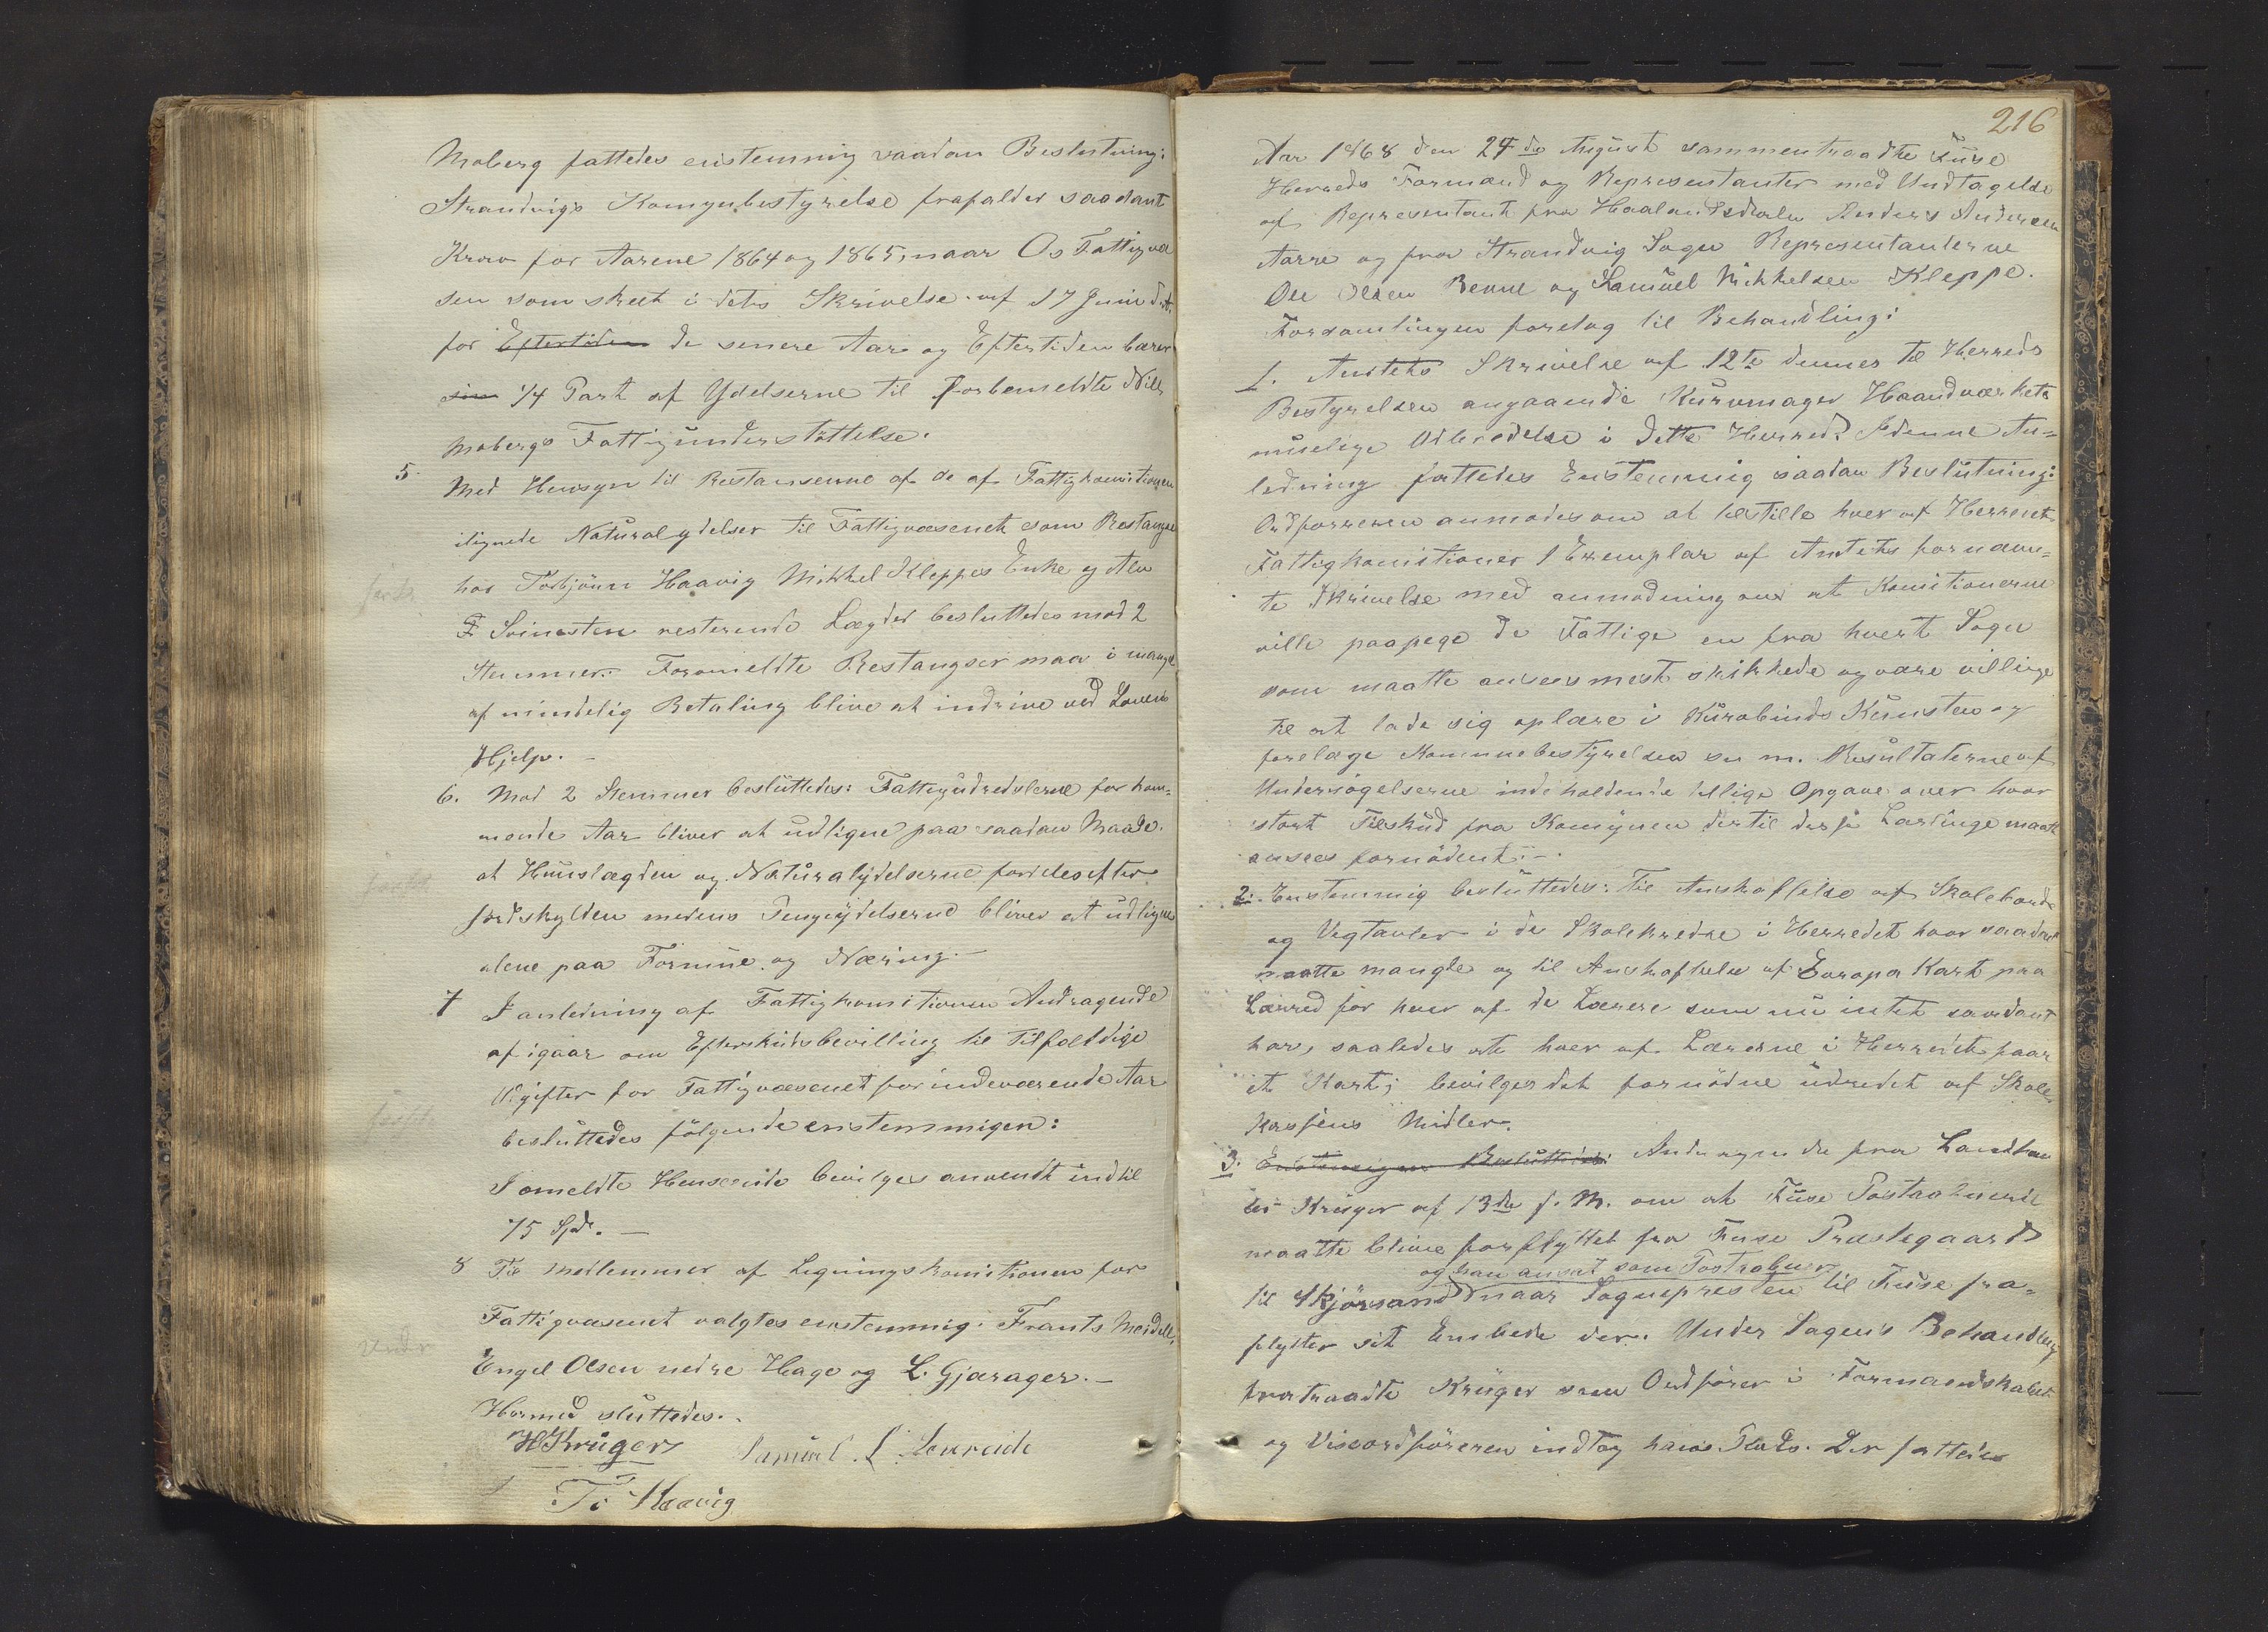 Moberg fattedes enstemmig saadan Beslutning:
Strandvigs Komunbestyrelse frafalder saadant
Krav for Aarene 1864 og 1865, naar Os Fattigvæ
sen som skeet i dets Skrivelse af 17 Juni d.A.
for Eftertiden de senere Aar og Eftertiden bærer
sin 1/4 Part af Ydelserne til forbemeldte Nills
Mobergs Fattigunderstöttelse.
5. Med Hensyn til Restanserne af de af Fattigkomitionen
ilignede Naturalydelser til Fattigvæsenet som Restanser
hos Torbjönn Haavig Mikkel Kleppes Enke og
F Svinesten resterende Lægder besluttedes mod 2
Stemmer: Foromeldte Restangser maa i mangel
af mindelig Betaling blive at inddrive ved Lovens
Hjelp. -
6. Mod 2 Stemmer besluttedes: Fattigudredslerne for kom=
mende Aar bliver at udligne paa saadan Maade.
at Huuslægden og Naturalydelserne fordeles efter
jordskylden medens Pengeydelserne bliver at udligne
alene paa Formue og Næring. -
7 I anledning af Fattigkomitionen Andragende
af igaar om Efterskudsbevilling til Tilfældige
Udgifter for Fattigvæsenet for indeværende Aar
besluttedes fölgende enstemmigen:
I omeldte Henseende bevilges anvendt indtil
75 Spd. -
8 Til Medlemmer af Ligningskomitionen for
Fattigvæsenet valgtes enstemmig: Frants Meidell,
Engel Olsen nedre Hage og L. Gjærager. -
Hermed sluttedes.
HKrüger Samuel L
T. Haavig
216
Aar 1868 den 24de August sammentraadte Fuse
Herreds Formænd og Representanter med Undtagelse
af Representant fra Haalandsdalen Anders Andersen
Aarre og fra Strandvig Sogn Representanterne
Ole Olsen Berne og Samuel Mikkelsen Kleppe.
Forsamlingen foretog til Behandling:
1. Amtets Skrivelse af 12te dennes til Herreds
Bestyrelsen angaaende Kurvmager Haandværkets
muelige Udbredelse i dette Herred? I denne An=
ledning fattedes Enstemmig saadan Beslutning:
Ordföreren anmodes om at tilstille hver af Herredets
Fattigkomitioner 1 Exemplar af Amtets fornævn=
te Skrivelse med anmodning om at Komitionerne
ville paapege de Fattige en fra hvert Sogn
som maatte ansees mest skikkede og være villige
til at lade sig oplære i Kurvbinds Kunsten og
forelæge Komunebestyrelsen sn m. Resultaterne af
Undersögelserne indeholdende tillige Opgave over hvor
stort Tilskud fra Komunen dertil disse Lærlinge maatte
ansees fornödent. -
2. Enstemmig besluttedes: Til Anskaffelse af Skoleborde
og Vegtavler i de Skolekredse i Herredet hvor saadant
maatte mangle og til Anskaffelse af Europa Kart paa
Lærred for hver af de Lærere som nu intet saadant
har, saaledes at hver af Lærerne i Herredet faar
et Kart; bevilges det fornödne udredet af Skole
kassens Midler.
3. Enstemmigen Besluttedes: Andragende fra Landhan
der Krüger af 13de f. M. om at Fuse Postaabneri
maatte blive forflyttet fra Fuse Præstegaard
og han ansat som Postaabner
til Skjörsand naar Sognepresten til Fuse fra=
flytter sit Embede der. Under Sagens Behandling
fratraadte Krüger som Ordförer i Formandskabet
og Viseordföreren indtog hans Plads. Der fattedes